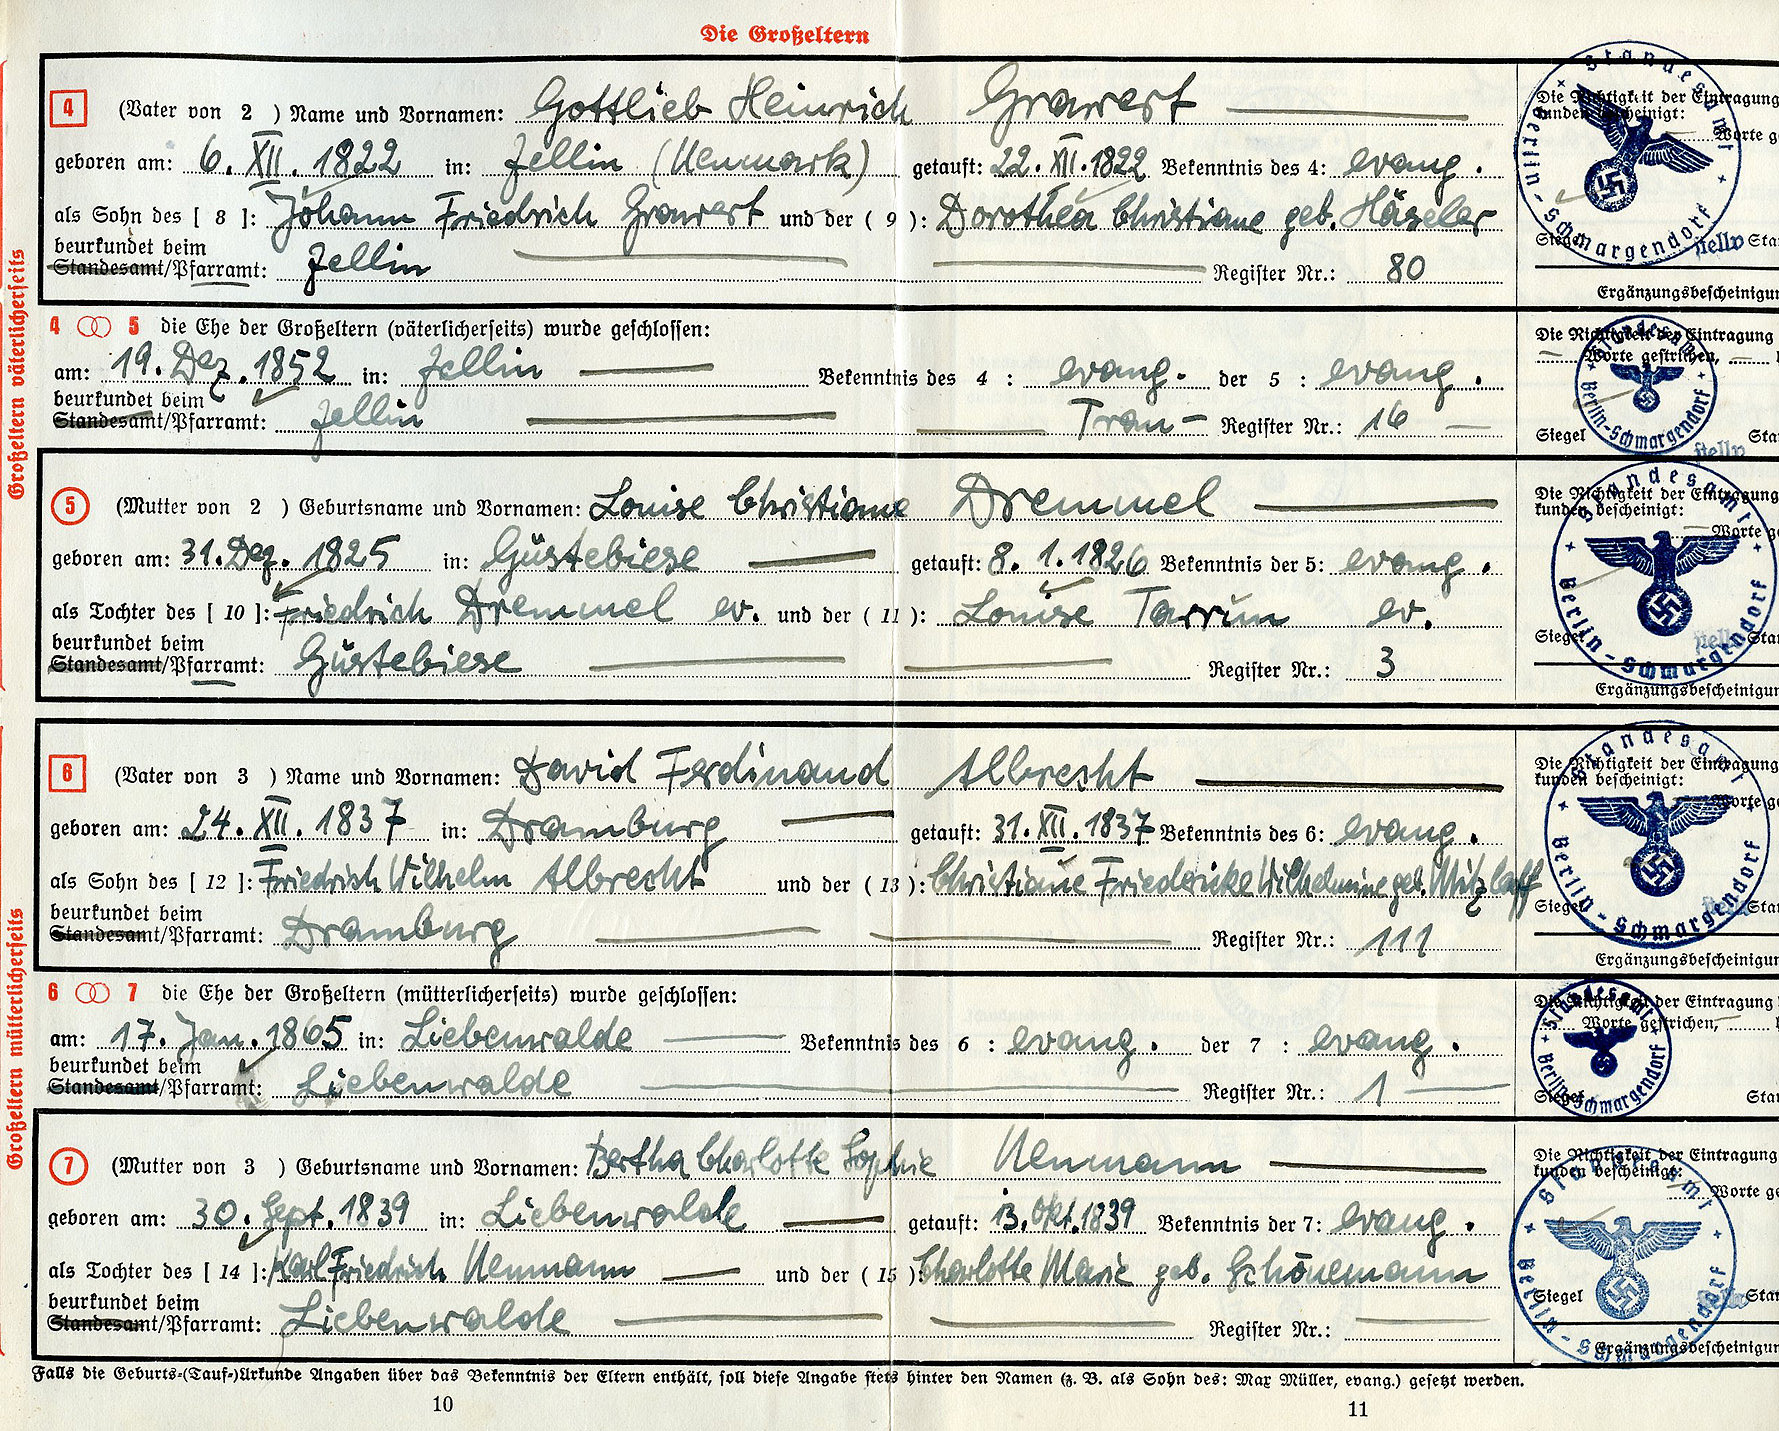 Die Großeltern
Großeltern väterlicherseits
4 (Vater von 2 ) Name und Vornamen: Gottlieb Heinrich Grawert
geboren am: 6. XII. 1822 in: Zellin (Neumark) getauft: 22. XII. 1822 Bekenntnis des 4: evang.
als Sohn des [ 8 ]: Johann Friedrich Grawert und der ( 9 ): Dorothea Christiane geb. Häseler
beurkundet beim
Standesamt/Pfarramt: Zellin Register Nr.: 80
Die Richtigkeit der Eintragung
kunden bescheinigt:
Worte ge
Siegel stellv Sta
Ergänzungsbescheinigun
Standesamt Berlin-Schmargendorf
4 5 die Ehe der Großeltern (väterlicherseits) wurde geschlossen:
am: 19. Dez. 1852 in: Zellin Bekenntnis des 4 : evang. der 5 : evang.
beurkundet beim
Standesamt/Pfarramt: Zellin Trau- Register Nr.: 16
Die Richtigkeit der Eintragung
Worte gestrichen,
Siegel stellv Sta
Standesamt Berlin-Schmargendorf
5 (Mutter von 2 ) Geburtsname und Vornamen: Louise Christiane Dremmel
geboren am: 31. Dez. 1825 in: Güstebiese getauft: 8. 1. 1826 Bekenntnis der 5: evang.
als Tochter des [ 10 ]: Friedrich Dremmel ev. und der ( 11 ): Louise Tarrun ev.
beurkundet beim
Standesamt/Pfarramt: Güstebiese Register Nr.: 3
Die Richtigkeit der Eintragung
kunden bescheinigt:
Worte ge
Siegel stellv Sta
Ergänzungsbescheinigun
Standesamt Berlin-Schmargendorf
Großeltern mütterlicherseits
6 (Vater von 3 ) Name und Vornamen: David Ferdinand Albrecht
geboren am: 24. XII. 1837 in: Dramburg getauft: 31. XII. 1837 Bekenntnis des 6: evang.
als Sohn des [ 12 ]: Friedrich Wilhelm Albrecht und der ( 13 ): Christiane Friedericke Wilhelmine geb. Mitzlaff
beurkundet beim
Standesamt/Pfarramt: Dramburg Register Nr.: 111
Die Richtigkeit der Eintragung
kunden bescheinigt:
Worte ge
Siegel Sta
Ergänzungsbescheinigun
Standesamt Berlin-Schmargendorf
6 7 die Ehe der Großeltern (mütterlicherseits) wurde geschlossen:
am: 17. Jan. 1865 in: Liebenwalde Bekenntnis des 6 : evang. der 7 : evang.
beurkundet beim
Standesamt/Pfarramt: Liebenwalde Register Nr.: 1
Die Richtigkeit der Eintragung
Worte gestrichen,
Siegel Sta
Standesamt Berlin-Schmargendorf
7 (Mutter von 3 ) Geburtsname und Vornamen: Bertha Charlotte Sophie Neumann
geboren am: 30. Sept. 1839 in: Liebenwalde getauft: 13. Okt. 1839 Bekenntnis der 7: evang.
als Tochter des [ 14 ]: Karl Friedrich Neumann und der ( 15 ): Charlotte Marie geb. Schönemann
beurkundet beim
Standesamt/Pfarramt: Liebenwalde Register Nr.:
Die Richtigkeit der Eintragung
kunden bescheinigt:
Worte ge
Siegel Sta
Ergänzungsbescheinigun
Standesamt Berlin-Schmargendorf
Falls die Geburts-(Tauf-)Urkunde Angaben über das Bekenntnis der Eltern enthält, soll diese Angabe stets hinter den Namen (z. B. als Sohn des: Max Müller, evang.) gesetzt werden.
10
11